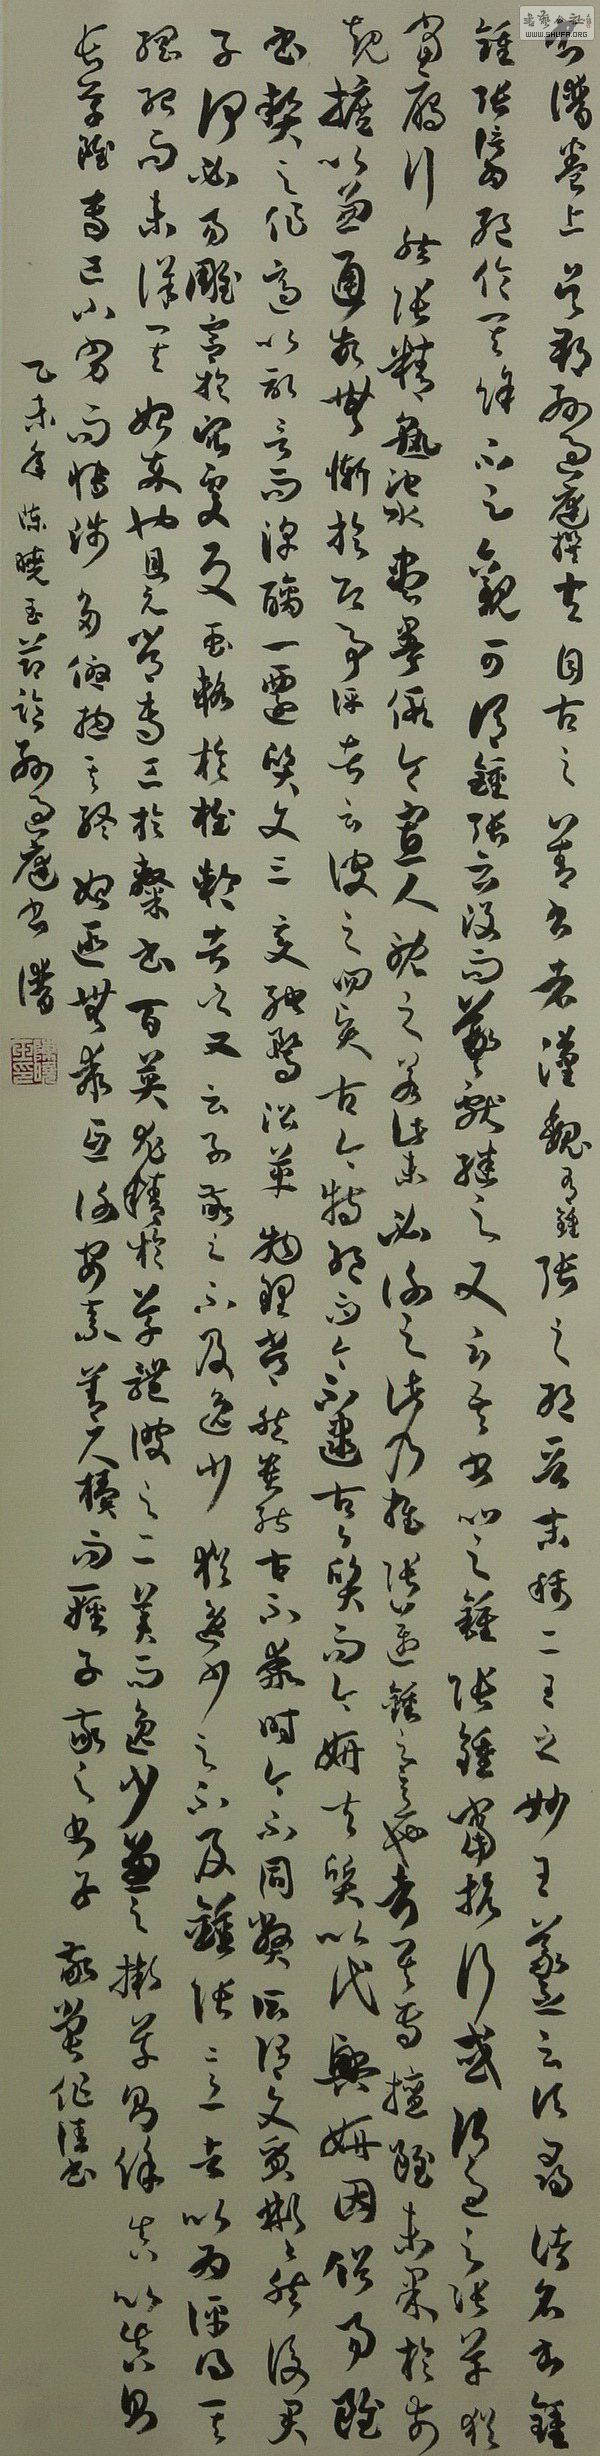 書譜卷上吳郡孫過庭撰夫自古之善書者漢魏有鍾張之絕晉末稱二王之妙王羲之云頃尋諸名書鍾
鍾張信為絕倫其餘不足觀可謂鍾張云沒而羲獻繼之又云吾書比之鍾張鍾當抗行或謂過之張草猶
當雁行然張精熟池水盡墨假令寡人耽之若此未必謝之此乃推張邁鍾之意也考其專擅雖未果於前
規摭以兼通故無慚於即事評者云彼之四賢古今特絕而今不逮古古質而今妍夫質以代興妍因俗易雖
書契之作適以記言而淳醨一遷質文三變馳騖沿革物理常然貴能古不乖時今不同弊所謂文質彬彬然後君
子何必易雕宮於穴處反玉輅於椎輪者乎又云子敬之不及逸少猶逸少之不及鍾張意者以為評得其
綱紀而未詳其始卒也且元常專工於隸書百英尤精於草體彼之二美而逸少兼之擬草則餘真比真則
長草雖專工小劣而博涉多優總其終始匪無乖互謝安素善尺牘而輕子敬之書子敬嘗作佳書
乙未年陳曉玉節臨孫過庭書譜
書藝公社
WWW.SHUFA.ORG